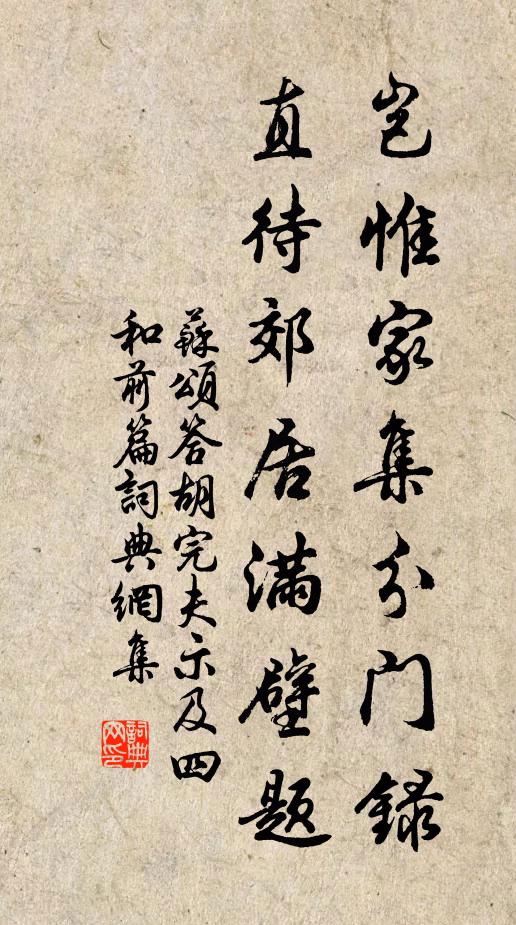 岂惟家集分門録
直待郊居满壁题
蘇頌答胡完夫示及四
和前篇詞典網集
詞典
网印